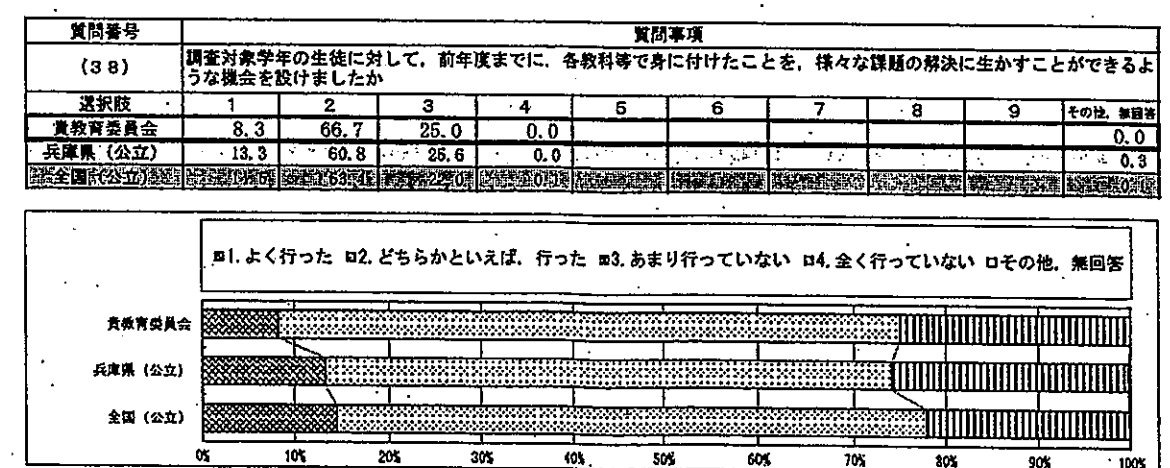 質問番号 質問事項
(38) 調査対象学年の生徒に対して，前年度までに，各教科等で身に付けたことを，様々な課題の解決に生かすことができるよ
うな機会を設けましたか
選択肢 1 2 3 4 5 6 7 8 9 その他，無回答
貴教育委員会 8.3 66.7 25.0 0.0 0.0
兵庫県（公立） 13.3 60.8 25.6 0.0 0.3
全国（公立） 63.4 22.0 0.1 0.1
1.よく行った 2.どちらかといえば，行った 3.あまり行っていない 4.全く行っていない その他，無回答
貴教育委員会
兵庫県（公立）
全国（公立）
0% 10% 20% 30% 40% 50% 60% 70% 80% 90% 100%